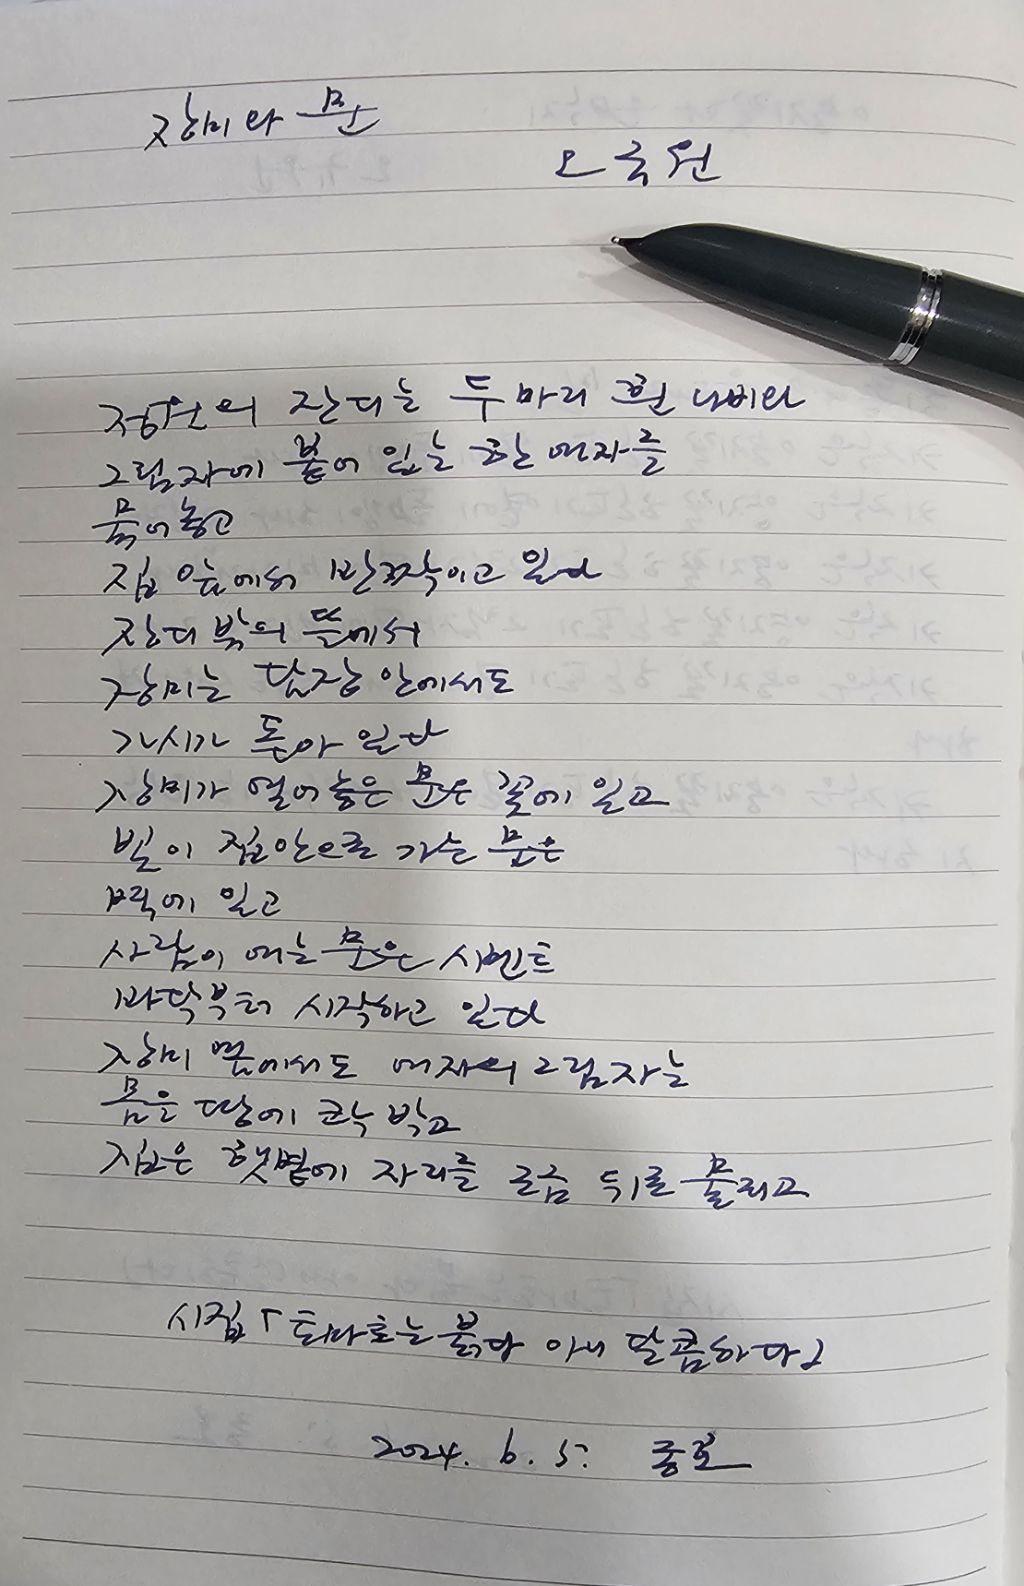 장미와 문
오규원
정원의 잔디는 두 마리 흰 나비와
그림자에 붙어 있는 한 여자를
묶어놓고
집 앞에서 반짝이고 있다
잔디 밖의 뜰에서
장미는 담장 안에서도
가시가 돋아 있다
장미가 열어놓은 문은 꽃에 있고
빛이 집안으로 가는 문은
벽에 있고
사람이 여는 문은 시멘트
바닥부터 시작하고 있다
장미 옆에서도 여자의 그림자는
몸은 땅에 콱 박고
집은 햇볕에 자리를 조금 뒤로 물리고
시집「토마토는 붉다 아니 달콤하다」
2024. 6. 5.